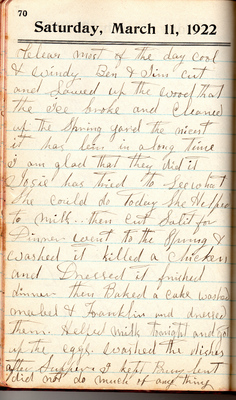 70
Saturday, March 11, 1922
Clear most of the day cool
& windy. Ben & Jim cut
and Sawed up the wood that
the Ice broke and Cleaned
up the Spring yard the nicest
it has bein in a long time
I am glad that they did it
Josie has tried to See what
She could do Today She Helped
to milk - then cut Salit for
Dinner went to the Spring &
washed it killed a Chicken
and Dressed it finished
dinner then Baked a cake washed
mabel & Franklin and dressed
them. Helped milk tonight and got
up the eggs. washed the dishes
after Supper. I kept Busy but
did not do much of any thing